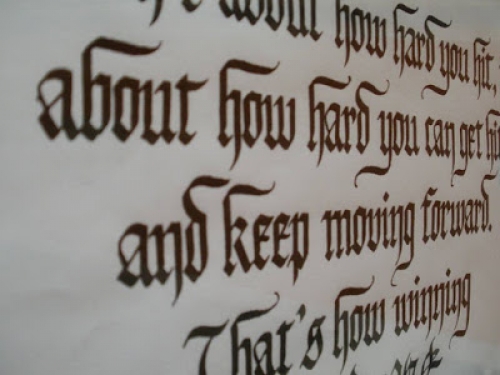 about how hard you hit,
about how hard you can get hi
and keep moving forward.
That's how winning